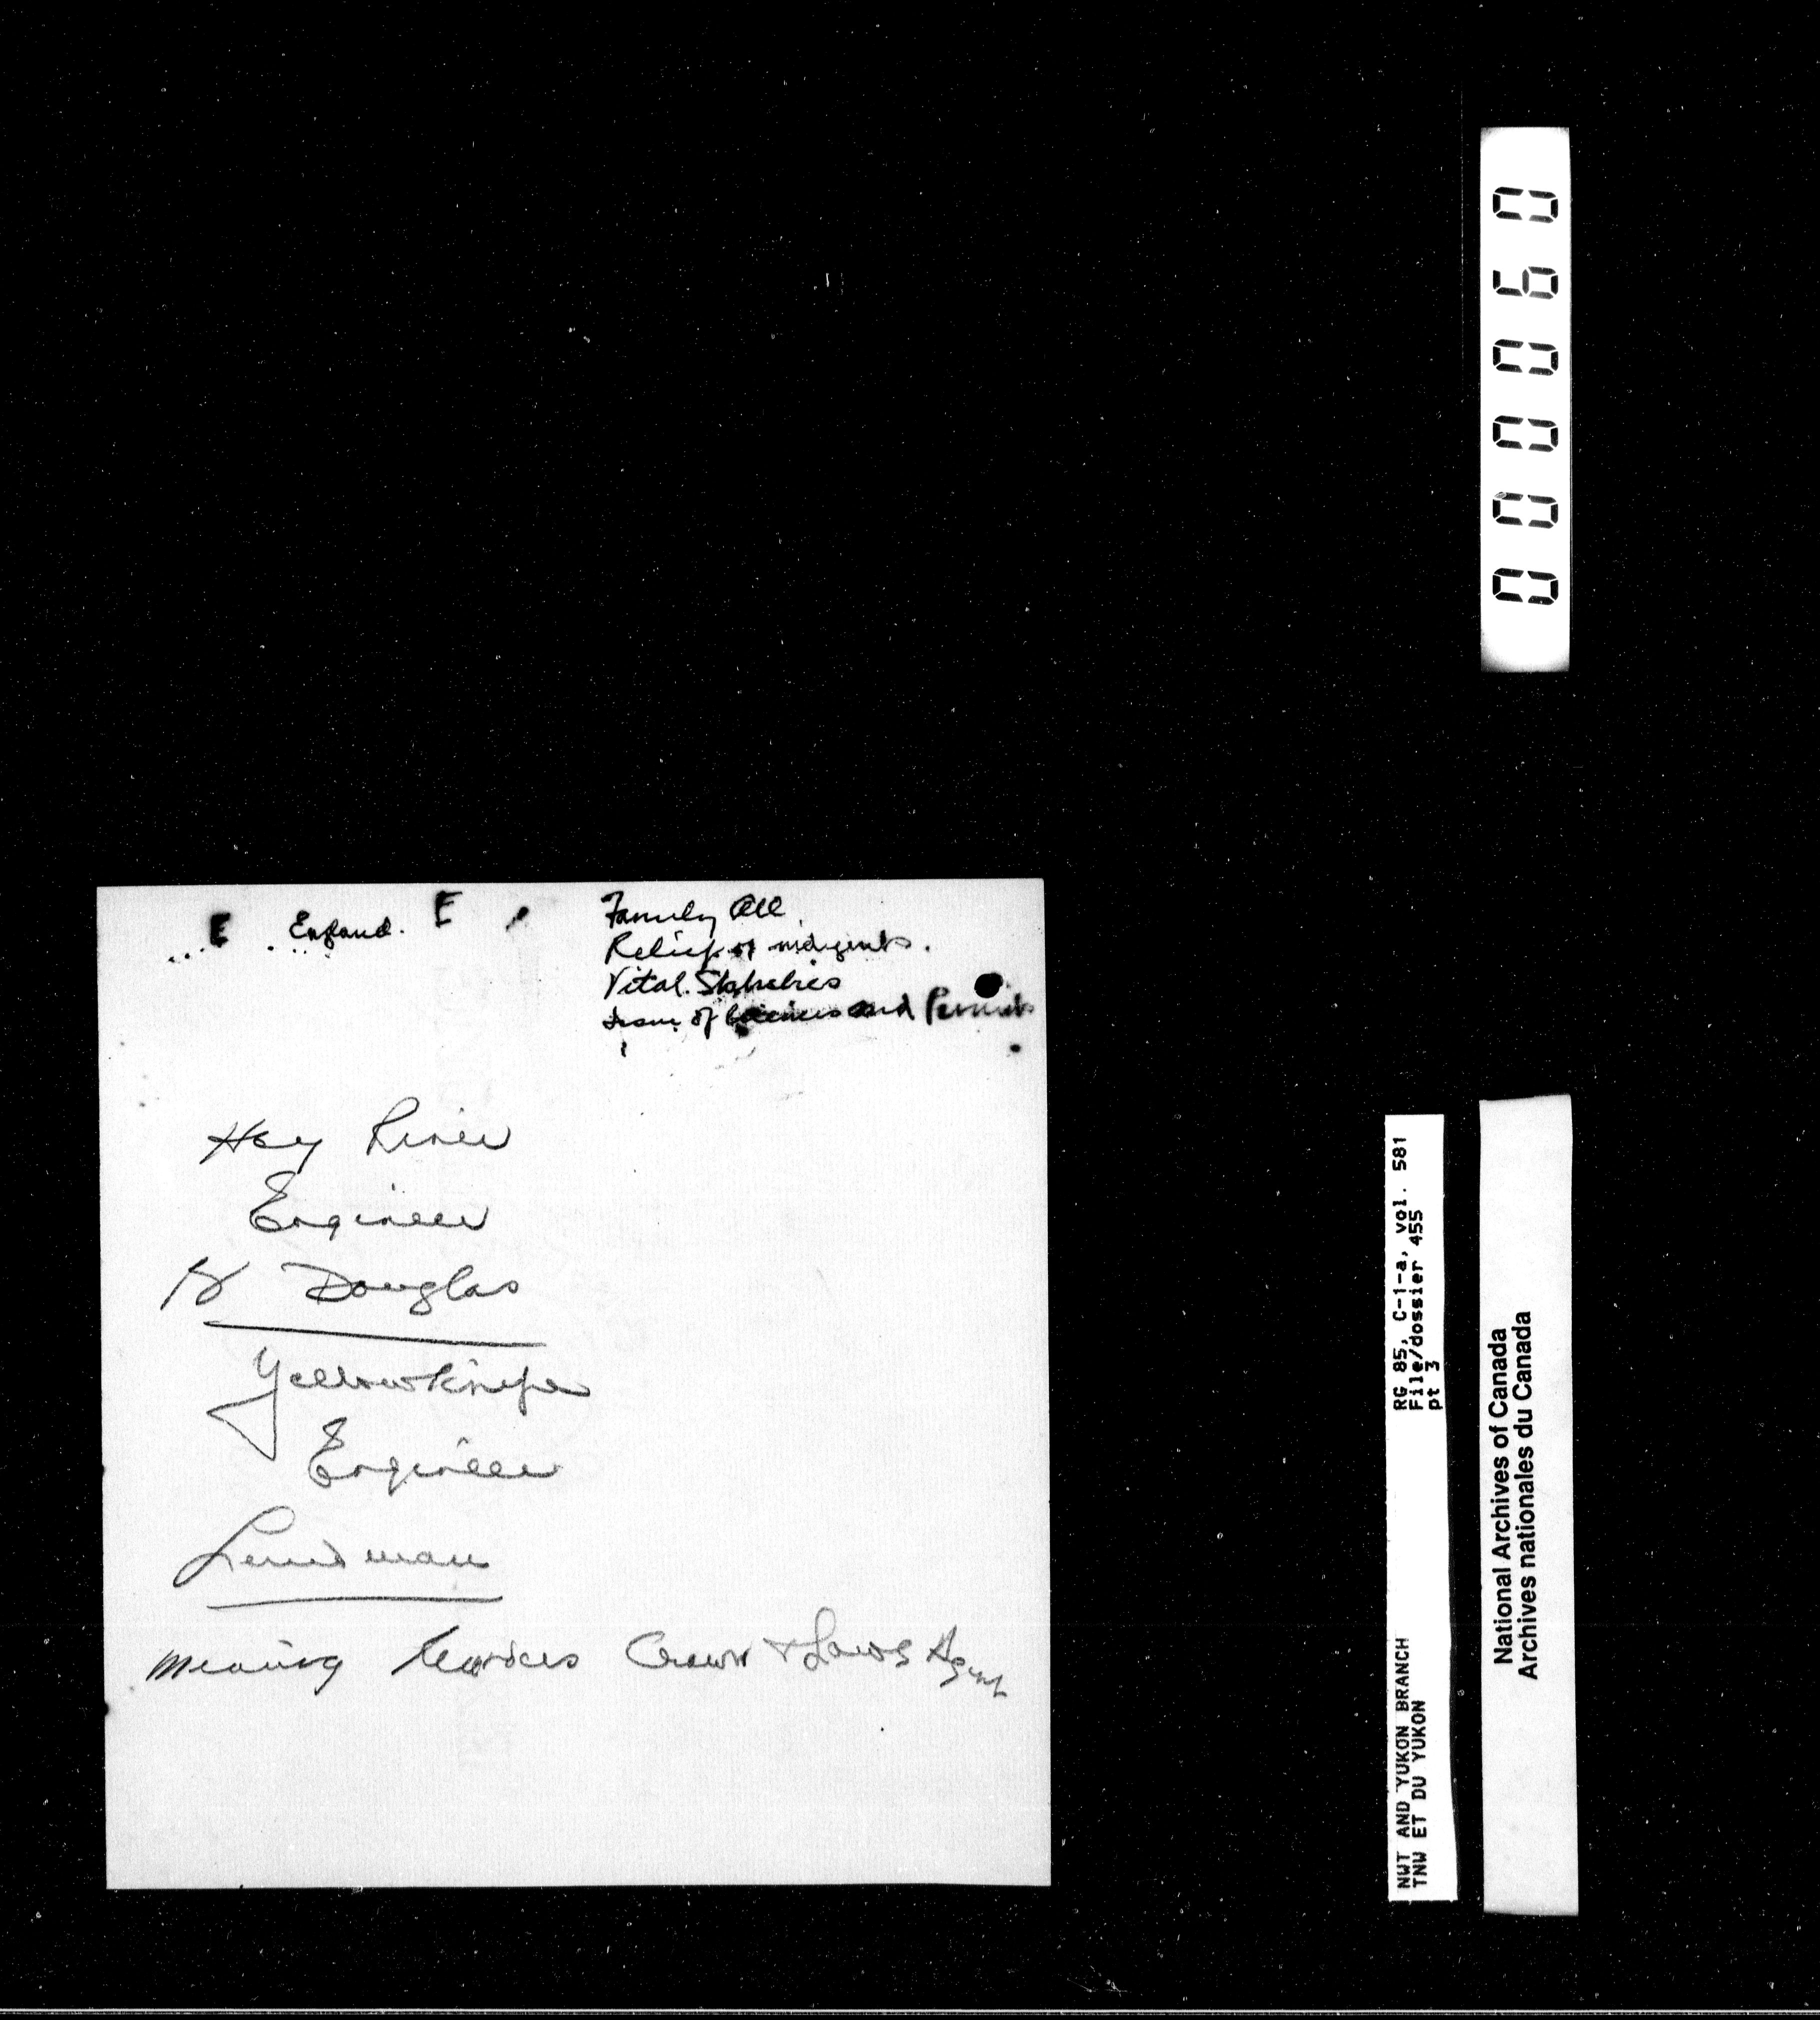 E England. E
Family All.
Relief of indigents.
Vital. Statistics
Issue of Licences and Permits
Hay River
Engineer
Douglas
Yellowknife
Engineer
Mining Recorders Crown & Lands Agent
000060
RG 85, C-1-a, vol. 581
File/dossier 455
pt 3
NWT AND YUKON BRANCH
TNW ET DU YUKON
National Archives of Canada
Archives nationales du Canada